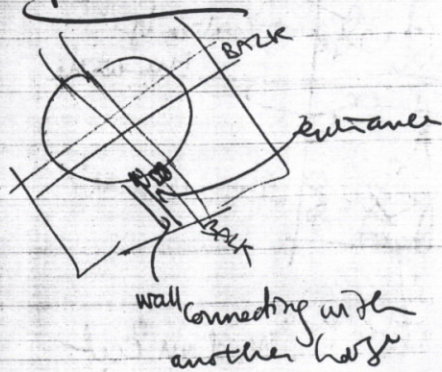 BALK
entrance
BALK
wall connecting with
another house